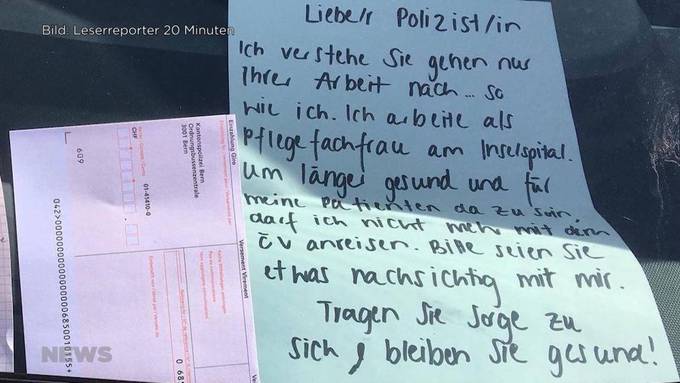 Bild: Leserreporter 20 Minuten
Liebe/r Polizist/in
Ich verstehe Sie gehen nur
Ihrer Arbeit nach... so
wie ich. Ich arbeite als
Pflegefachfrau am Inselspital.
Um länger gesund und für
meine Patienten da zu sein,
darf ich nicht mehr mit dem
ÖV anreisen. Bitte seien Sie
etwas nachsichtig mit mir.
Tragen Sie Sorge zu
sich, bleiben Sie gesund!
Einzahlung Giro
Versement Virement
Kantonspolizei Bern
Ordnungsbussenzentrale
3001 Bern
01-41410-0
CHF
609
NEWS